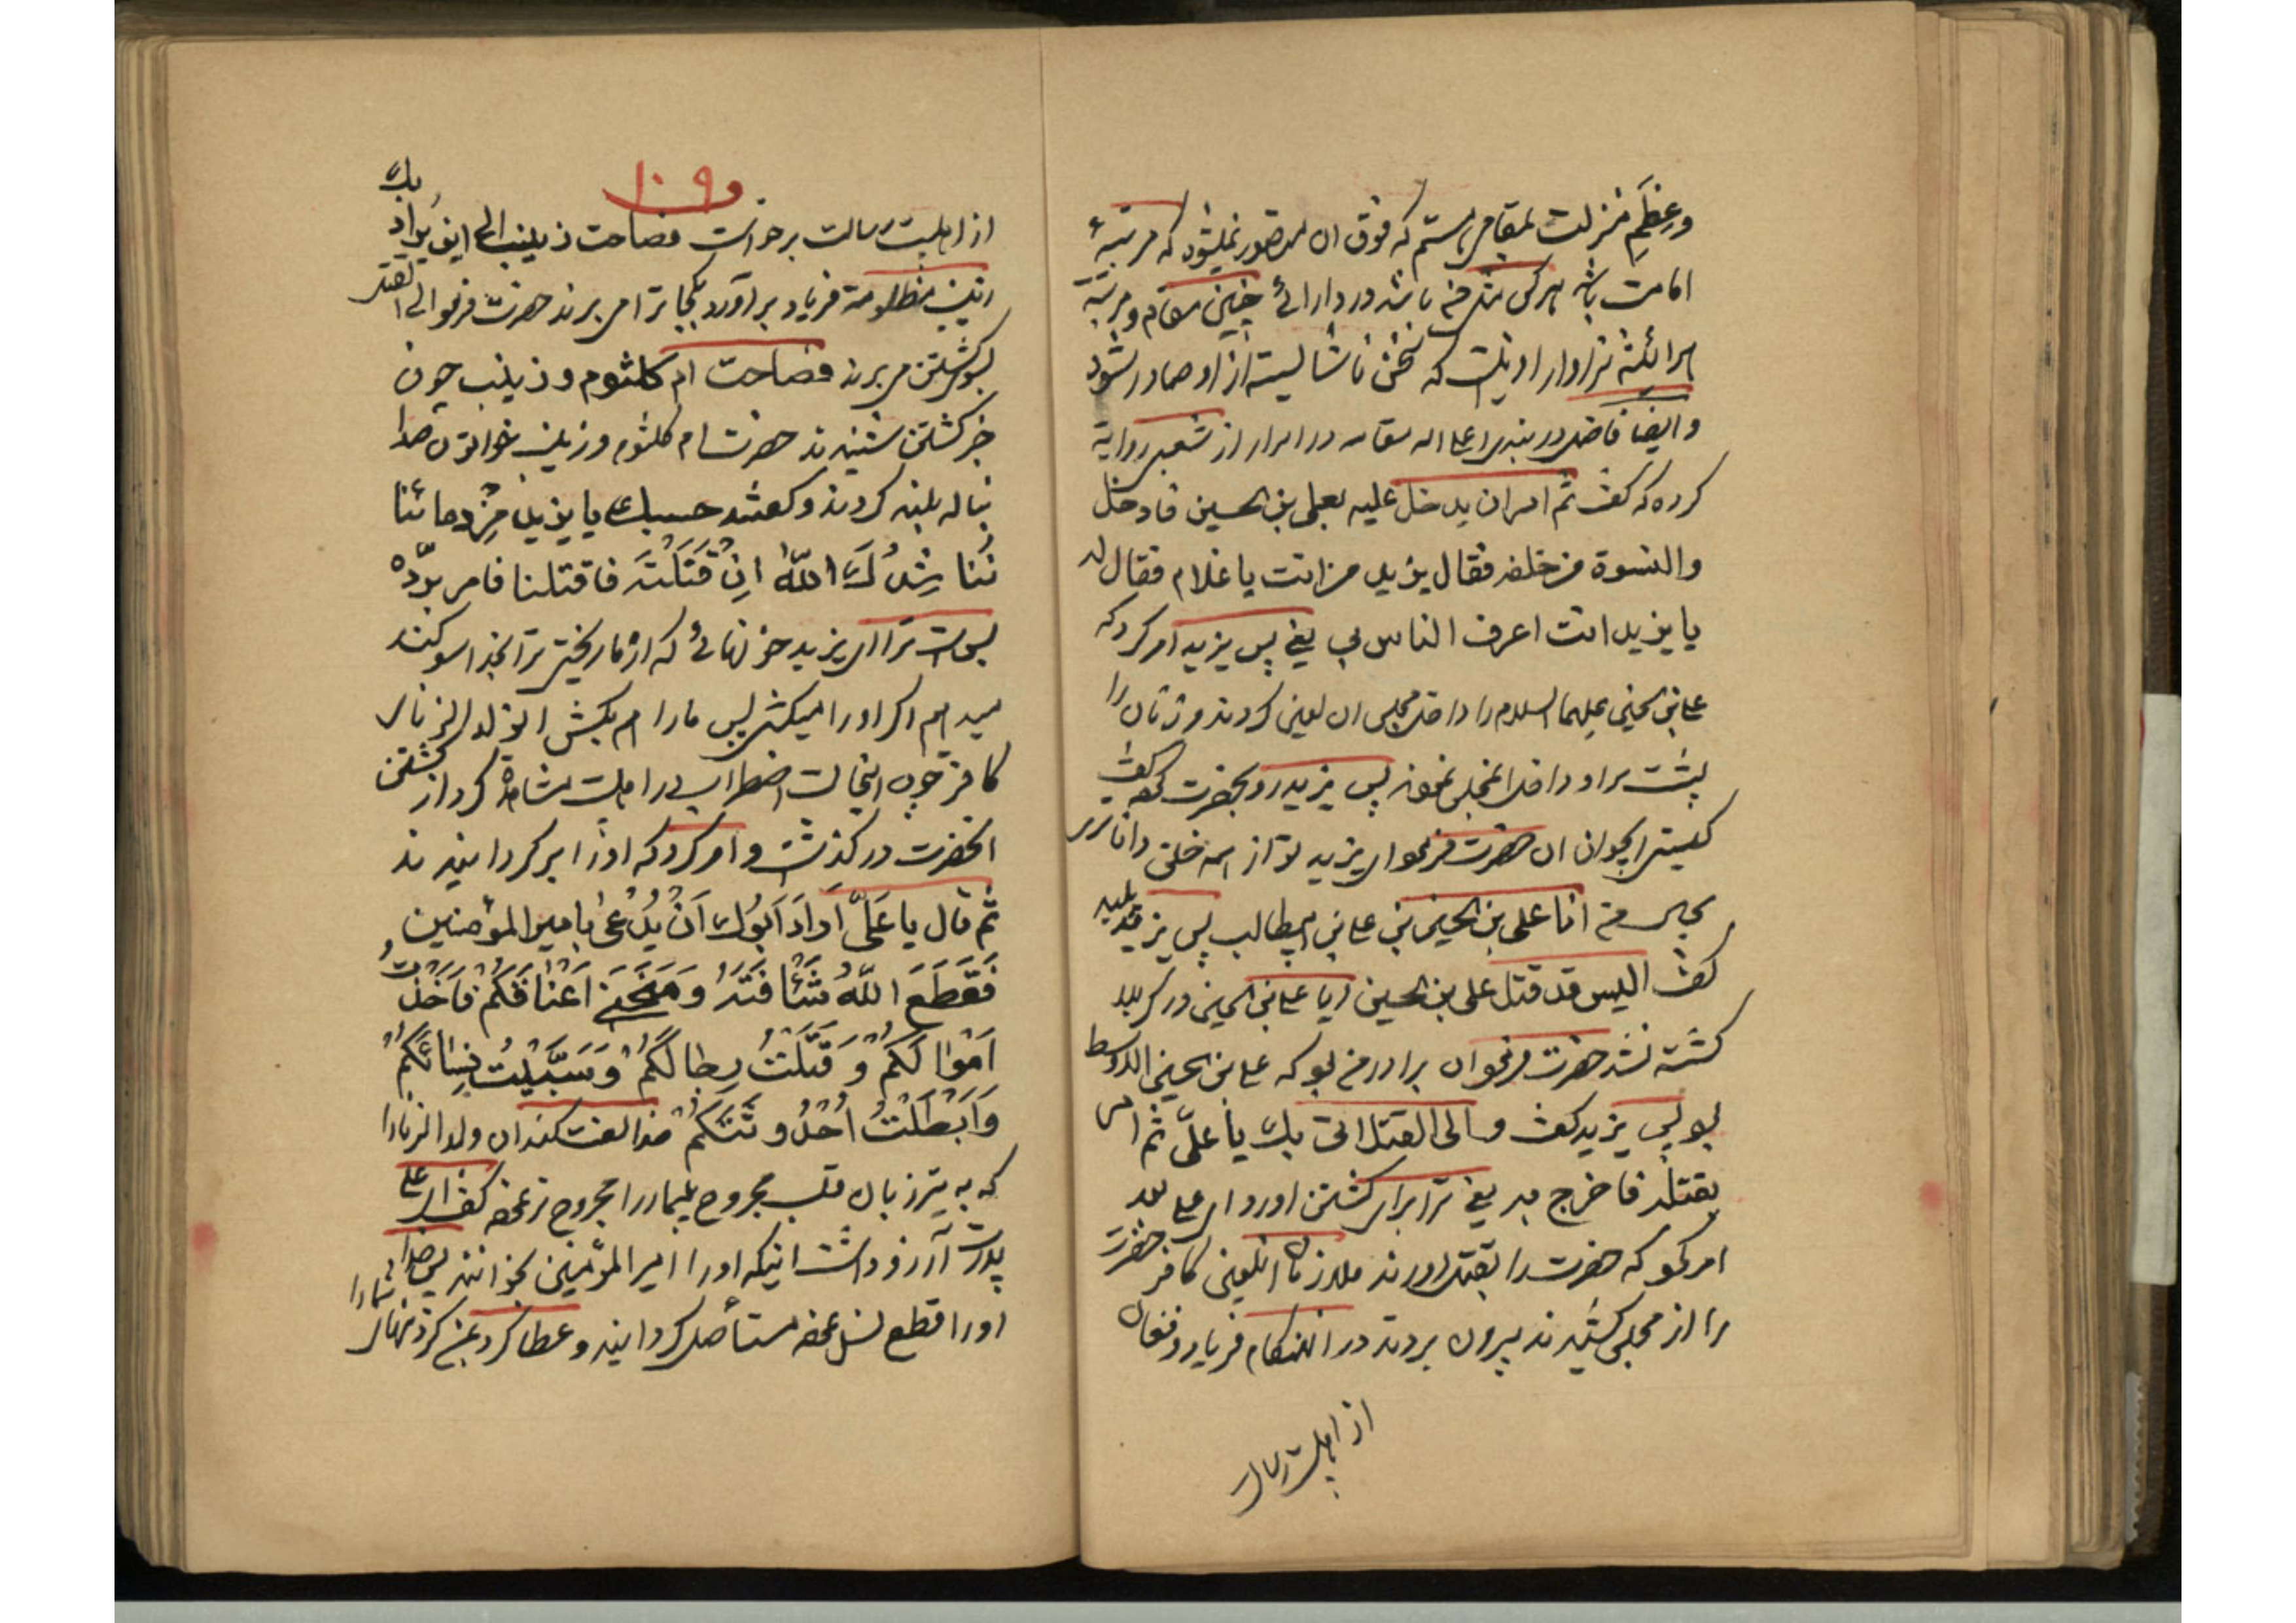 وعِظَمِ منزلت بمقامی هستم که فوق ان متصور نمیشود که مرتبهٔ
امامت باشد هرکس مثل من باشد در دارائی چنین مقام و مرتبه
هرائنه سزاوار او نیست که سخن ناشایسته از او صادر شود
وایضا فاضل دربندی اعلی اله مقامه در اسرار از شعبی روایة
کرده که کفت ثم امران یدخل علیه بعلی بن الحسین فادخل
والنسوة من خلفه فقال یزید من انت یا غلام فقال له
یا یزید انت اعرف الناس بی یعنی پس یزید امر کرد که
علی بن الحسین علیهما السلام را داخل مجلس ان لعین کردند و زنان را
پشت سر او داخل مجلس نموند پس یزید رو بحضرت کرد کفت
کیستی ایجوان ان حضرت فرمود ای یزید تو از همه خلق داناتری
بحال من انا علی بن الحسین بن علی بن ابیطالب پس یزید پلید
کفت الیس قد قتل علی بن الحسین ایا علی بن الحسین در کربلا
کشته نشد حضرت فرمود ان برادر من بود که علی بن الحسین الاوسط
بود پس یزید کفت والی القتل اتی بك یا علیّ ثم امر
بقتله فاخرج به یعنی ترا برای کشتن اورد ای علی بعد
امر نمود که حضرت را بقتل اورند ملازمان انلعین کافر حضرت
را از مجلس کشیدند بیرون بردند در انهنکام فریاد وفغان
از اهلبیت رسالت
۱۰۹
از اهلبیت رسالت برخواست فصاحت زینب الی این یراد بك
زینب مظلومة فریاد براورد بکجا ترا می برند حضرت فرمود الی القتل
بسوی کشتن می برند فصاحت ام کلثوم و زینب چون
خبر کشتن شنیدند حضرت ام کلثوم و زینب خواتون صدا
بناله بلند کردند و کفتند حسبك یا یزید من دمائنا
نُناشِدُكَ اللهَ اِنْ قَتَلْتَه فاقتلنا فامر بردّه
بس است ترا ای یزید خونهائی که از ما ریختی ترا بخدا سوکند
میدهم اکر او را میکشی پس ما را هم بکش انولد الزنای
کافر چون انحالت اضطراب را از اهلبیت مشاهده کرد از کشتن
انحضرت درکذشت و امر کرد که او را برکردانیدند
ثم قال یا عَلیّ اَرادَ اَبُوك اَنْ یُدْعیٰ بامیر المؤمنین
فَقَطَعَ اللهُ شَافَتَهُ وَمَنَحَنی اَعْناقَکُمْ فَاَخَذْتُ
اَمْوالَکُمْ وَ قَتَلْتُ رِجالَکُمْ وَسَبَیْتُ نِسائَکُمْ
وَاَبْطَلْتُ اُحْدُوثَتَکُمْ خدا لعنت کند ان ولد الزنا را
که به تیر زبان قلب مجروح بیمار را مجروح تر نموده کفت ای علی
پدرت آرزو داشت اینکه او را امیر المؤمنین بخوانند پس خدا
او را قطع نسل نموده مستأصل کردانید و عطا کرد بمن کردنهای شما را